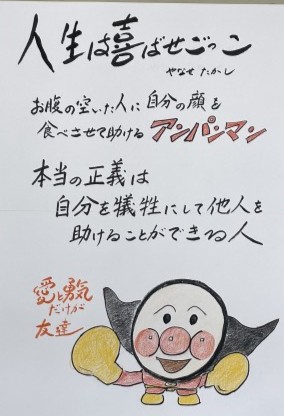 人生は喜ばせごっこ
やなせ たかし
お腹の空いた人に自分の顔を
食べさせて助ける アンパンマン
本当の正義は
自分を犠牲にして他人を
助けることができる人
愛と勇気
だけが
友達